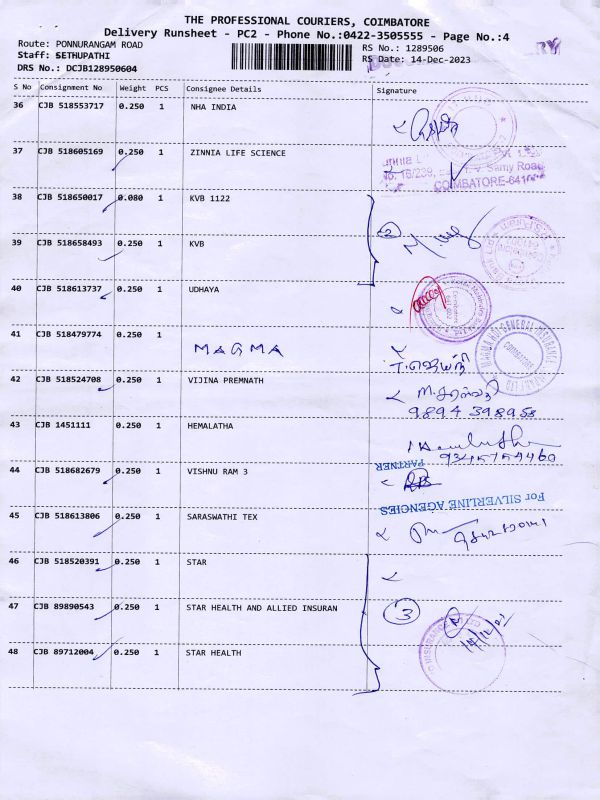 THE PROFESSIONAL COURIERS, COIMBATORE
Delivery Runsheet - PC2 - Phone No.:0422-3505555 - Page No.:4
Route: PONNURANGAM ROAD
RS No.: 1289506
Staff: SETHUPATHI
RS Date: 14-Dec-2023
DRS No.: DCJB128950604
S No Consignment No Weight PCS Consignee Details Signature
36 CJB 518553717 0.250 1 NHA INDIA
37 CJB 518605169 0.250 1 ZINNIA LIFE SCIENCE
Samy Road
COIMBATORE-641
38 CJB 518650017 0.080 1 KVB 1122
2
39 CJB 518658493 0.250 1 KVB
40 CJB 518613737 0.250 1 UDHAYA
41 CJB 518479774 0.250 1 MAGMA
MAGMA HDI GENERAL INSURANCE
COIMBATORE
42 CJB 518524708 0.250 1 VIJINA PREMNATH
9894398958
43 CJB 1451111 0.250 1 HEMALATHA
PARTNER
44 CJB 518682679 0.250 1 VISHNU RAM 3
For SILVERLINE AGENCIES
45 CJB 518613806 0.250 1 SARASWATHI TEX
46 CJB 518520391 0.250 1 STAR
47 CJB 89890543 0.250 1 STAR HEALTH AND ALLIED INSURAN
3
48 CJB 89712004 0.250 1 STAR HEALTH